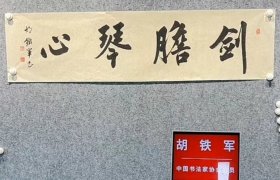 剑膽琴心
胡铁军
中国书法家协会会员